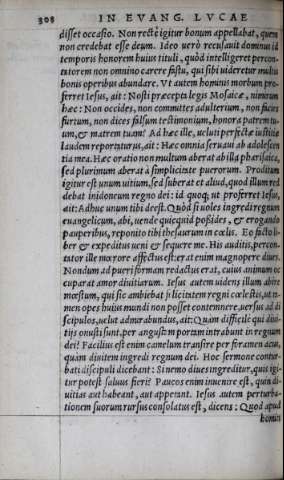 308 IN EVANG. LVCAE
disset occasio. Non recte igitur bonum appellabat, quem
non credebat esse deum. Ideo verò recusauit dominus id
temporis honorem huius tituli, quòd intelligeret percon-
tatorem non omnino carere fastu, qui sibi videretur multis
bonis operibus abundare. Vt autem hominis morbum pro-
ferret Iesus, ait: Nosti praecepta legis Mosaicae, nimirum
haec: Non occides, non committes adulterium, non facies
furtum, non dices falsum testimonium, honora patrem tu-
um, & matrem tuam? Ad haec ille, veluti perfectae iustitiae
laudem reportaturus, ait: Haec omnia seruaui ab adolescen
tia mea. Haec oratio non multum aberat ab illa pharisaica,
sed plurimum aberat à simplicitate puerorum. Proditum
igitur est unum uitium, sed suberat et aliud, quod illum red
debat inidoneum regno dei: id quoque ut proferret Iesus,
ait: Adhuc unum tibi deest. Quòd si uoles ingredi regnum
euangelicum, abi, uende quicquid possides, & erogando
pauperibus, reponito tibi thesaurum in coelis. Eo facto li-
ber & expeditus ueni & sequere me. His auditis, percon-
tator ille moerore affectus est: erat enim magnopere diues.
Nondum ad pueri formam redactus erat, cuius animum oc
cuparat amor diuitiarum. Iesus autem uidens illum abire
moestum, qui sic ambiebat felicitatem regni coelestis, ut ta-
men opes huius mundi non posset contemnere, uersus ad di
scipulos, uelut admirabundus, ait: Quàm difficile qui diui-
tijs onusti sunt, per angustam portam intrabunt in regnum
dei? Facilius est enim camelum transire per foramen acus,
quàm diuitem ingredi regnum dei. Hoc sermone contur-
bati discipuli dicebant: Si nemo diues ingreditur, quis igi-
tur potest saluus fieri? Paucos enim inuenire est, quin di-
uitias aut habeant, aut appetant. Iesus autem perturba-
tionem suorum rursus consolatus est, dicens: Quod apud
homin